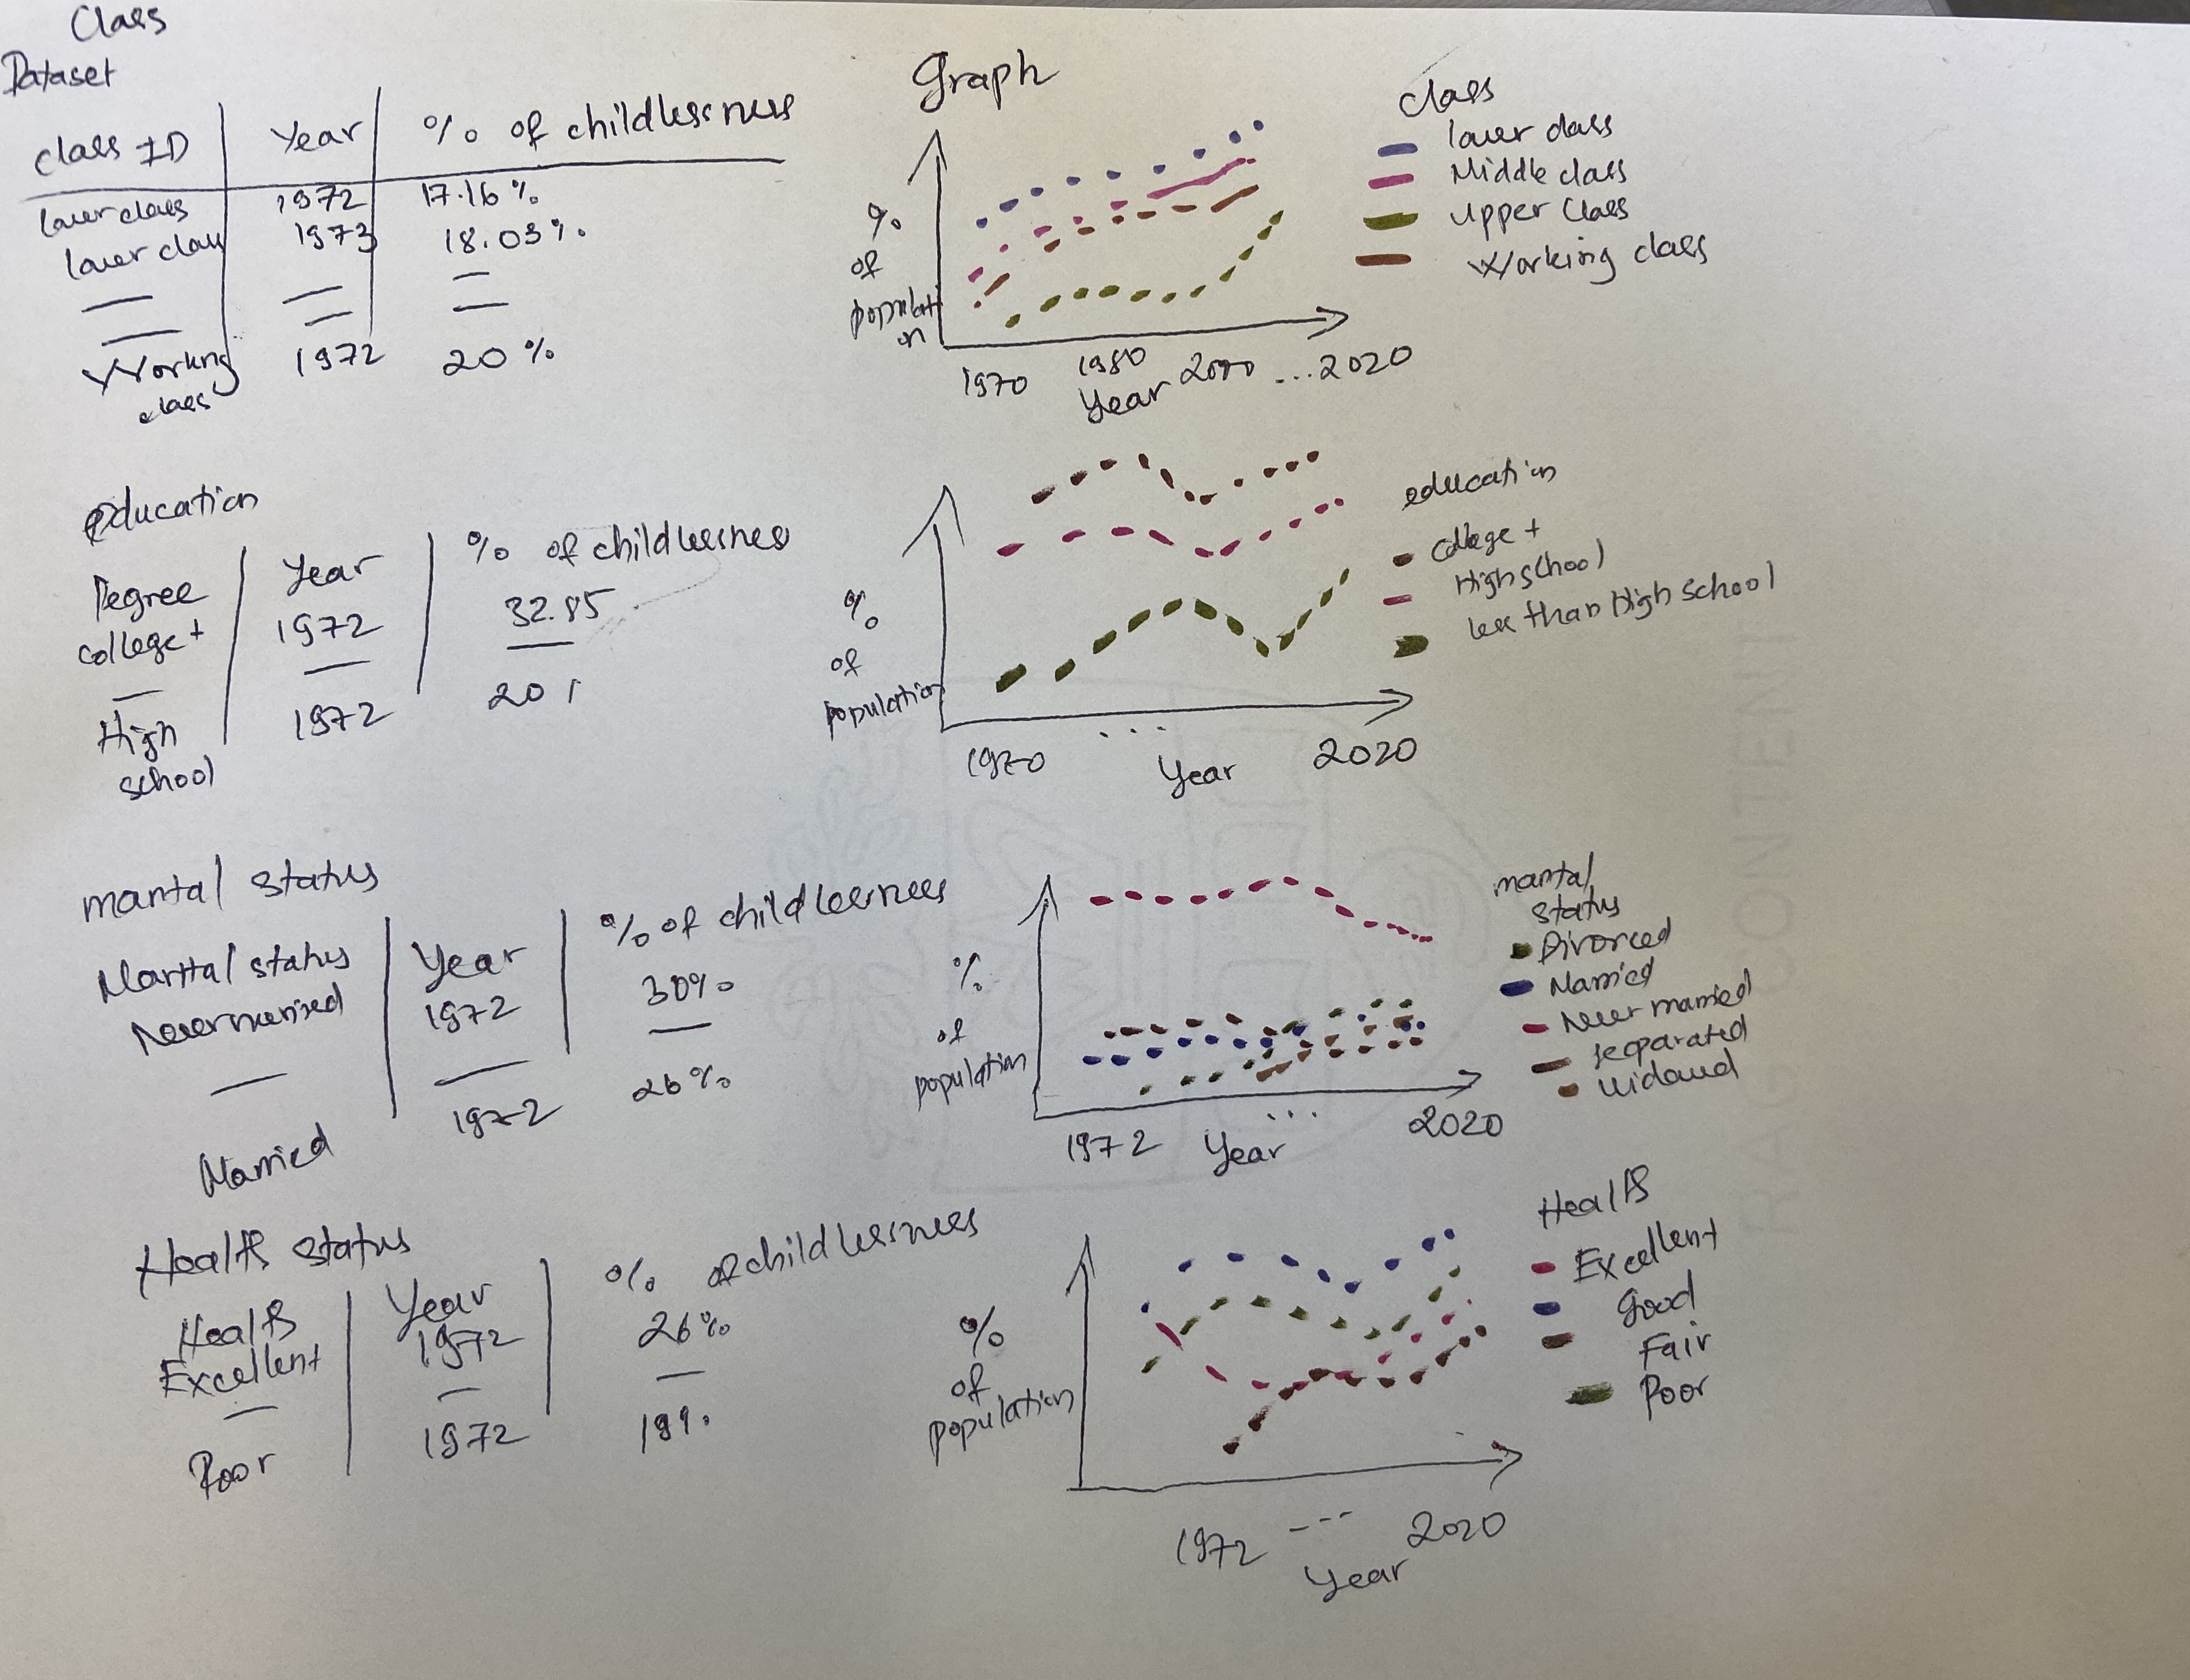 Class
Dataset
class ID | Year | % of childlessness
lower class 1972 17.16%
lower class 1973 18.03%.
Working class 1972 20%
Graph
% of population
1970 1980 2000 ...2020
Year
class
lower class
Middle class
Upper Class
Working class
education
Degree | Year | % of childlessness
college+ 1972 32.85
High school 1972 20
% of population
1970 ... 2020
Year
education
College +
High school
less than High school
marital status
Marital status | Year | % of childlessness
Never married 1972 30%
Married 1972 26%
% of population
1972 ... 2020
Year
marital status
Divorced
Married
Never married
separated
widowed
Health status
Health | Year | % of childlessness
Excellent 1972 26%
Poor 1972
% of population
1972 --- 2020
Year
Health
Excellent
Good
Fair
Poor